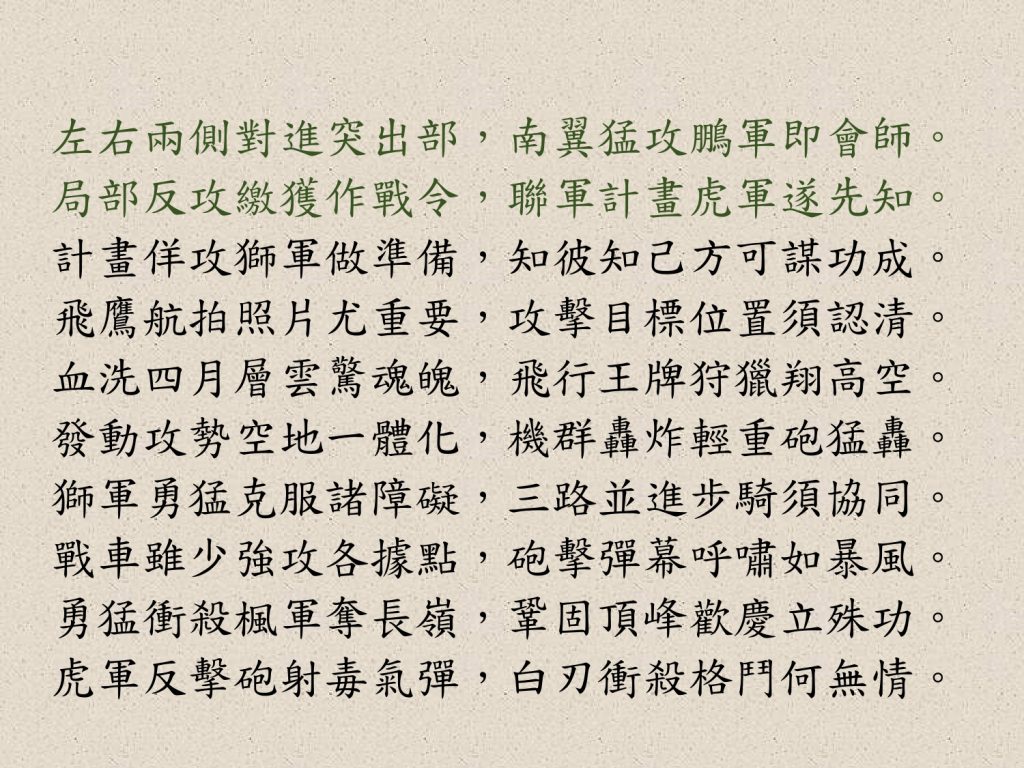 左右兩側對進突出部，南翼猛攻鵬軍即會師。
局部反攻繳獲作戰令，聯軍計畫虎軍遂先知。
計畫佯攻獅軍做準備，知彼知己方可謀功成。
飛鷹航拍照片尤重要，攻擊目標位置須認清。
血洗四月層雲驚魂魄，飛行王牌狩獵翔高空。
發動攻勢空地一體化，機群轟炸輕重砲猛轟。
獅軍勇猛克服諸障礙，三路並進步騎須協同。
戰車雖少強攻各據點，砲擊彈幕呼嘯如暴風。
勇猛衝殺楓軍奪長嶺，鞏固頂峰歡慶立殊功。
虎軍反擊砲射毒氣彈，白刃衝殺格鬥何無情。